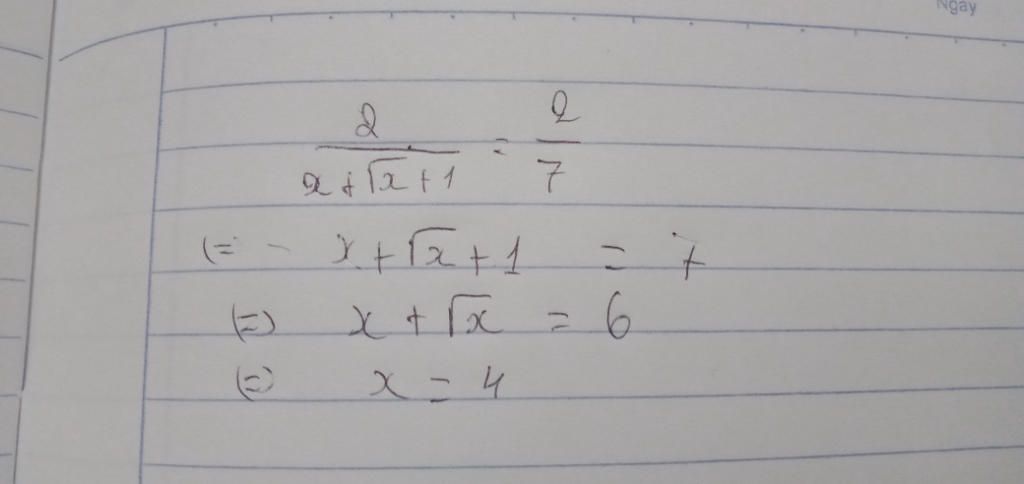 Ngày
2/(x+√x+1) = 2/7
(=) x+√x+1 = 7
(=) x+√x = 6
(=) x = 4